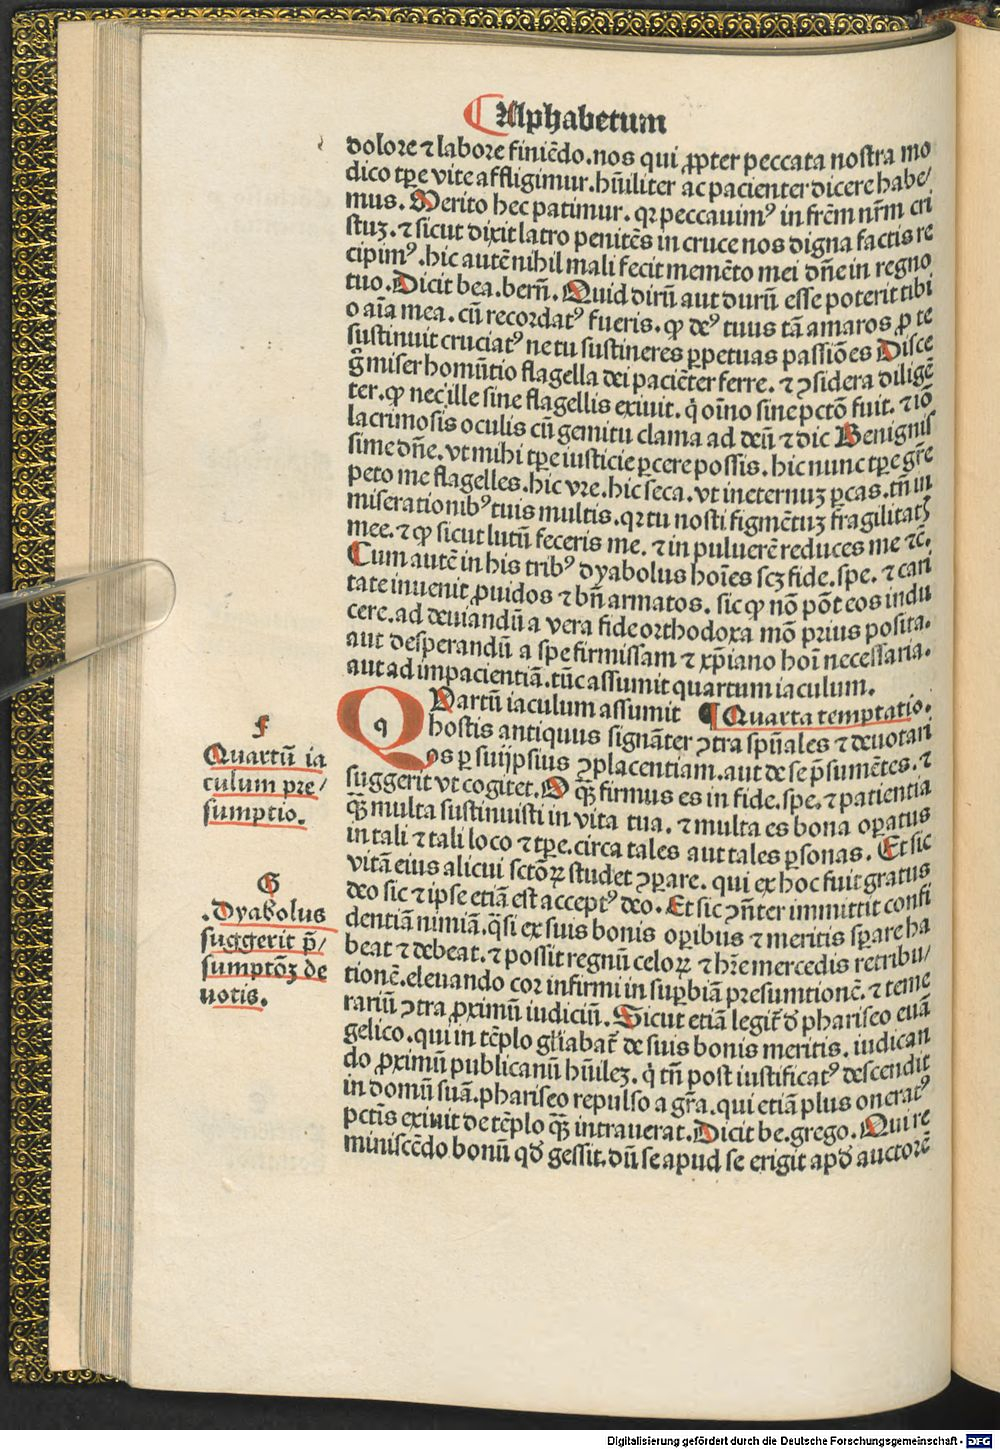 Alphabetum
dolore ⁊ labore finiēdo. nos qui ꝓpter peccata nostra mo
dico tꝑe vite affligimur. hūiliter ac pacienter dicere habe/
mus. Merito hec patimur. qꝛ peccauimꝰ in frēm nr̄m cri
stuꝫ. ⁊ sicut dixit latro penitēs in cruce nos digna factis re
cipimꝰ. hic autē nihil mali fecit memēto mei dn̄e in regno
tuo. Dicit bea. bern̄. Quid dirū aut durū esse poterit tibi
o aīa mea. cū recordatꝰ fueris. ꝙ deꝰ tuus tā amaros ꝓ te
sustinuit cruciatꝰ ne tu sustineres ꝑpetuas passiōes Disce
g̊ miser homūtio flagella dei paciēter ferre. ⁊ ꝯsidera diligē
ter. ꝙ nec ille sine flagellis exiuit. q̇ oīno sine pctō fuit. ⁊ iō
lacrimosis oculis cū gemitu clama ad deū ⁊ dic Benignis
sime dn̄e. vt mihi tꝑe iusticie ꝑcere possis. hic nunc tꝑe gr̄e
peto me flagelles. hic vre. hic seca. vt in eternuꝫ ꝑcas. tn̄ in
miserationibꝰ tuis multis. qꝛ tu nosti figmētuꝫ fragilitatꝭ
mee. ⁊ ꝙ sicut lutū feceris me. ⁊ in puluerē reduces me ⁊c̄.
Cum autē in his tribꝰ dyabolus hoīes scꝫ fide. spe. ⁊ cari
tate inuenit ꝓuidos ⁊ bn̄ armatos. sic ꝙ nō pōt eos indu
cere. ad deuiandū a vera fide orthodoxa mō prius posita.
aut desperandū a spe firmissam ⁊ xp̄iano hoī necessaria.
aut ad impacientiā. tūc assumit quartum iaculum.
QUartū iaculum assumit ¶ Quarta temptatio.
hostis antiquus signāter ꝯtra spūales ⁊ deuotari
os ꝑ suijpsius ꝯplacentiam. aut de se p̄sumētes. ⁊
suggerit vt cogitet. O q̄ꝫ firmus es in fide. spe. ⁊ patientia
q̄ꝫ multa sustinuisti in vita tua. ⁊ multa es bona oꝑatus
in tali ⁊ tali loco ⁊ tꝑe. circa tales aut tales ꝑsonas. Et sic
vitā eius alicui sctōꝝ studet ꝯꝑare. qui ex hoc fuit gratus
deo sic ⁊ ipse etiā est acceptꝰ deo. Et sic ꝯn̄ter immittit confi
dentiā nimiā. q̄si ex suis bonis oꝑibus ⁊ meritis sꝑare ha
beat ⁊ debeat. ⁊ possit regnū celoꝝ ⁊ hr̄e mercedis retribu/
tionē. eleuando cor infirmi in suꝑbiā presumtionē. ⁊ teme
rariū ꝯtra ꝓximū iudiciū. Sicut etiā legit̄ d̓ phariseo euā
gelico. qui in tēplo gl̄iabat̄ de suis bonis meritis. iudican
do ꝓximū publicanū hūileꝫ. q̇ tn̄ post iustificatꝰ descendit
in domū suā. phariseo repulso a gr̄a. qui etiā plus oneratꝰ
pctīs exiuit de tēplo q̄ꝫ intrauerat. Dicit be. grego. Qui re
miniscēdo bonū qd̓ gessit. dū se apud se erigit apd̓ auctorē
q
F
Quartū ia
culum pre/
sumptio.
G
.Dyabolus
suggerit p̄/
sumptōꝫ de
uotis.
Digitalisierung gefördert durch die Deutsche Forschungsgemeinschaft - DFG